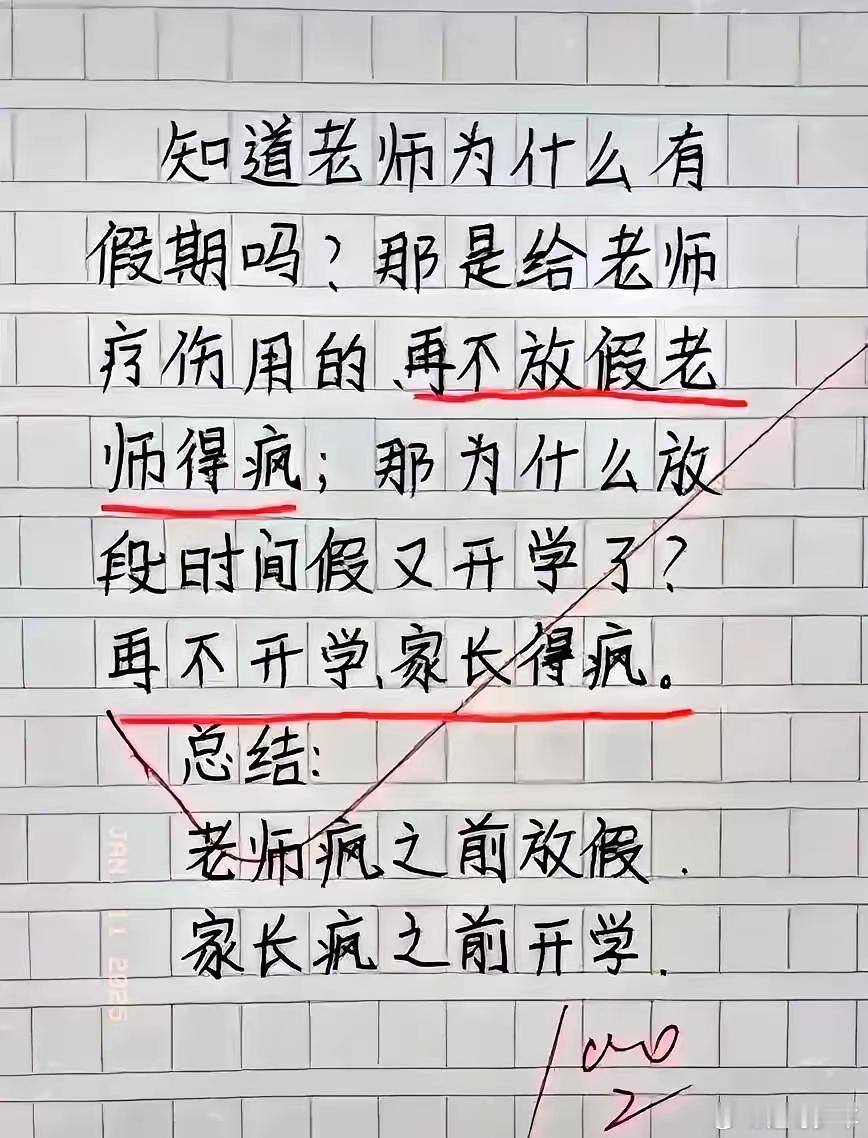 知道老师为什么有
假期吗?那是给老师
疗伤用的、再不放假老
师得疯;那为什么放
段时间假又开学了?
再不开学、家长得疯。
总结:
老师疯之前放假.
家长疯之前开学.
JAN 11 2025
100